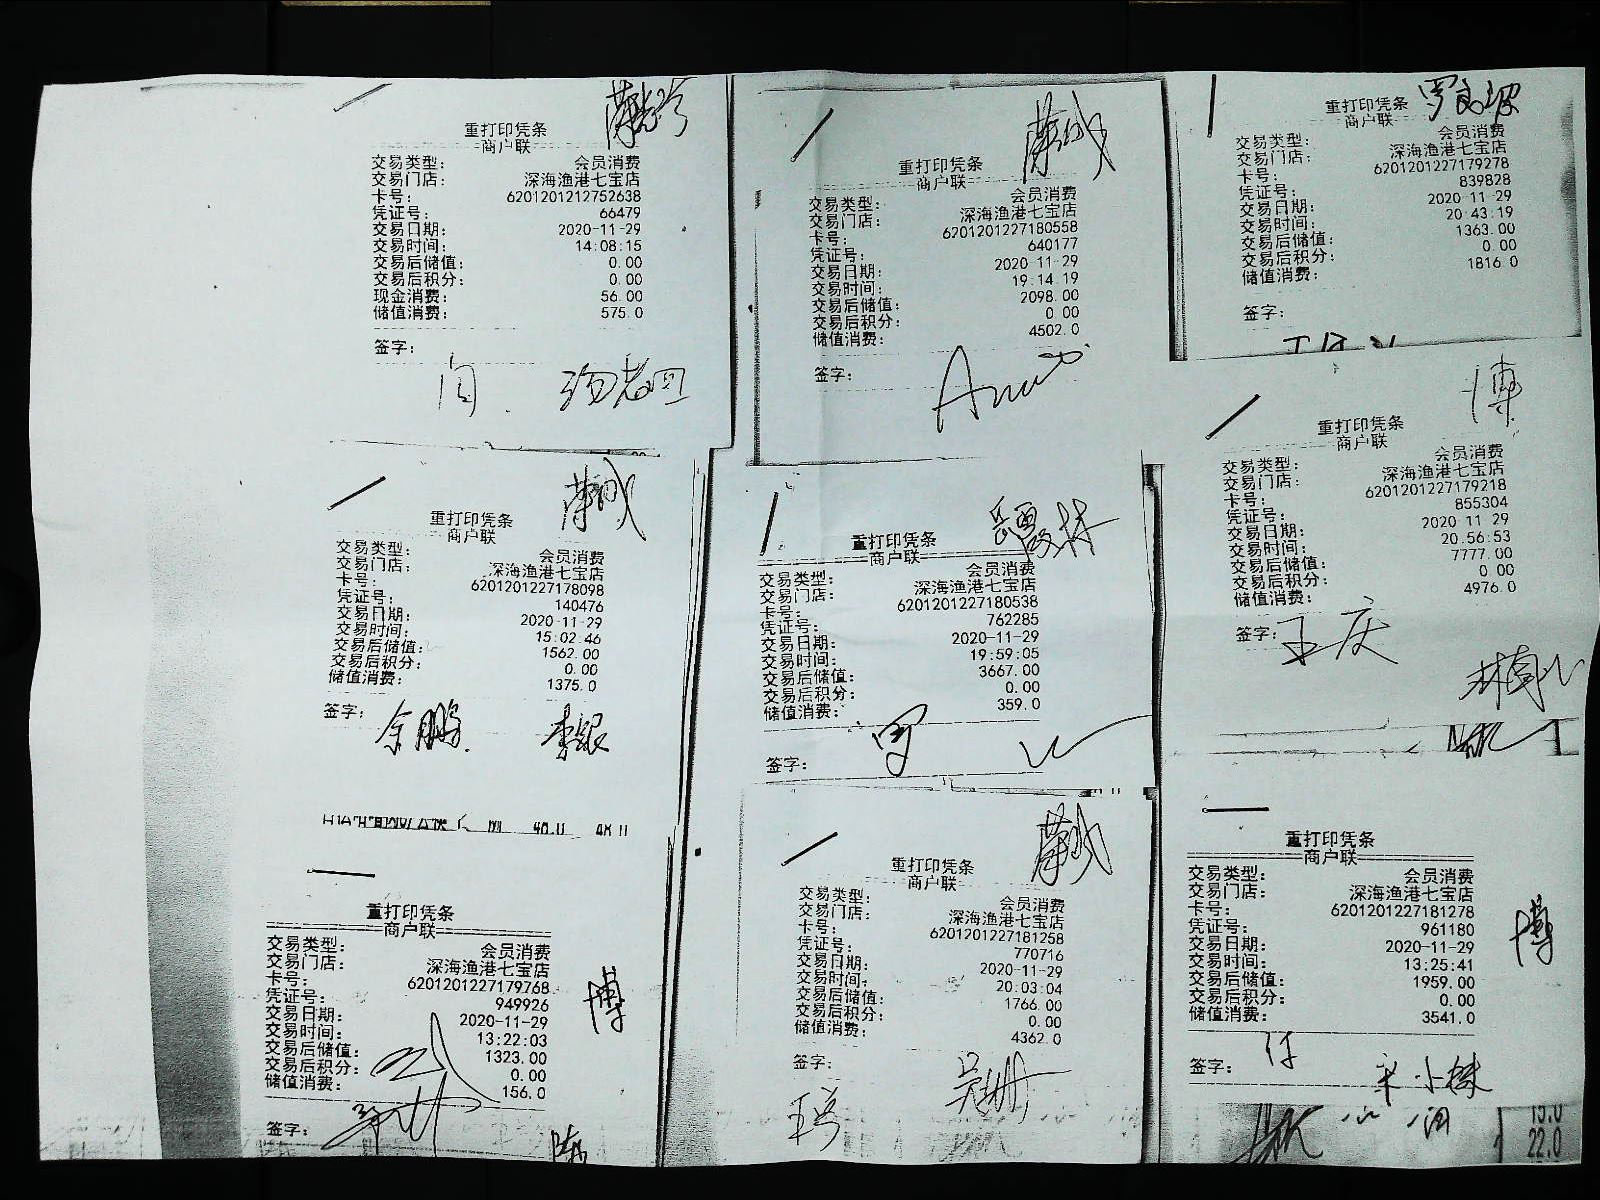 重打印凭条
商户联
交易类型: 会员消费
交易门店: 深海渔港七宝店
卡号: 6201201212752638
凭证号: 66479
交易日期: 2020-11-29
交易时间: 14:08:15
交易后储值: 0.00
交易后积分: 0.00
现金消费: 56.00
储值消费: 575.0
签字:
重打印凭条
商户联
交易类型: 会员消费
交易门店: 深海渔港七宝店
卡号: 6201201227180558
凭证号: 640177
交易日期: 2020-11-29
交易时间: 19:14:19
交易后储值: 2098.00
交易后积分: 0.00
储值消费: 4502.0
签字:
重打印凭条
商户联
交易类型: 会员消费
交易门店: 深海渔港七宝店
卡号: 6201201227179278
凭证号: 839828
交易日期: 2020-11-29
交易时间: 20:43:19
交易后储值: 1363.00
交易后积分: 0.00
储值消费: 1816.0
签字:
重打印凭条
商户联
交易类型: 会员消费
交易门店: 深海渔港七宝店
卡号: 6201201227178098
凭证号: 140476
交易日期: 2020-11-29
交易时间: 15:02:46
交易后储值: 1562.00
交易后积分: 0.00
储值消费: 1375.0
签字: 余鹏
重打印凭条
商户联
交易类型: 会员消费
交易门店: 深海渔港七宝店
卡号: 6201201227180538
凭证号: 762285
交易日期: 2020-11-29
交易时间: 19:59:05
交易后储值: 3667.00
交易后积分: 0.00
储值消费: 359.0
签字:
博
重打印凭条
商户联
交易类型: 会员消费
交易门店: 深海渔港七宝店
卡号: 6201201227179218
凭证号: 855304
交易日期: 2020-11-29
交易时间: 20:56:53
交易后储值: 7777.00
交易后积分: 0.00
储值消费: 4976.0
签字: 王庆
48.0 48.0
重打印凭条
商户联
交易类型: 会员消费
交易门店: 深海渔港七宝店
卡号: 6201201227179768
凭证号: 949926
交易日期: 2020-11-29
交易时间: 13:22:03
交易后储值: 1323.00
交易后积分: 0.00
储值消费: 156.0
签字:
博
重打印凭条
商户联
交易类型: 会员消费
交易门店: 深海渔港七宝店
卡号: 6201201227181258
凭证号: 770716
交易日期: 2020-11-29
交易时间: 20:03:04
交易后储值: 1766.00
交易后积分: 0.00
储值消费: 4362.0
签字:
重打印凭条
商户联
交易类型: 会员消费
交易门店: 深海渔港七宝店
卡号: 6201201227181278
凭证号: 961180
交易日期: 2020-11-29
交易时间: 13:25:41
交易后储值: 1959.00
交易后积分: 0.00
储值消费: 3541.0
签字:
博
22.0